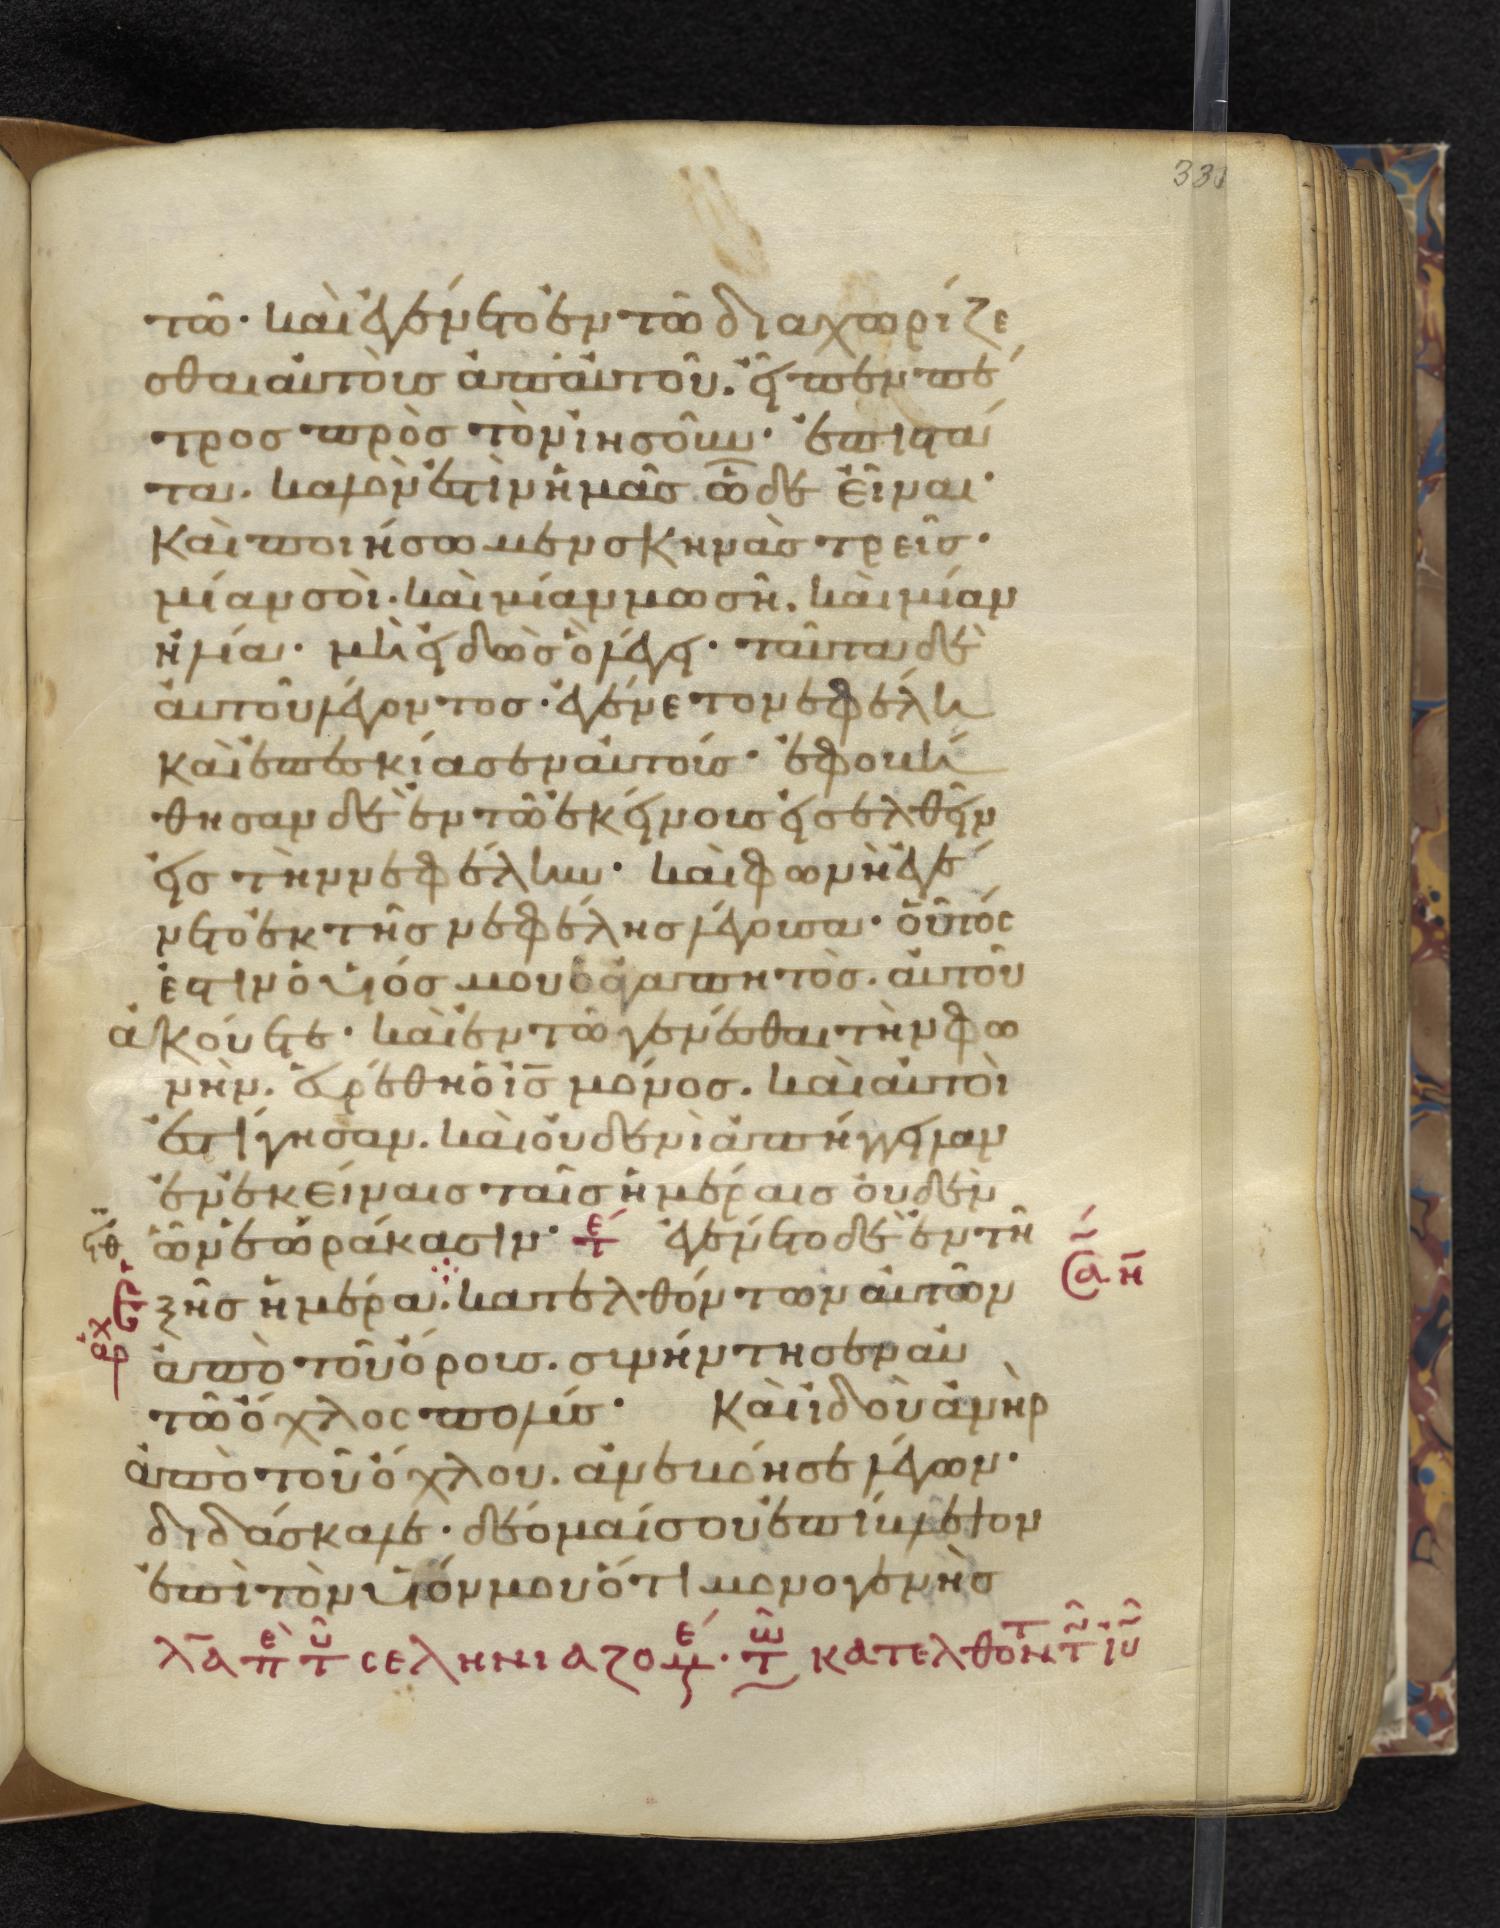 331
τῶ· καὶ ἐγένετο ἐν τῶ διαχωρίζε
σθαι αὐτοὺς ἀπ' αὐτοῦ. εἶπεν πέ
τρος πρὸς τὸν ἰησοῦν· ἐπιστά
τα. καλόν ἐστὶν ἡμᾶς ὧδε εἶναι·
καὶ ποιήσωμεν σκηνὰς τρεῖς·
μίαν σοὶ· καὶ μίαν μωσῆ. καὶ μίαν
ἡλία· μὴ εἰδὼς ὃ λέγει· ταῦτα δὲ
αὐτοῦ λέγοντος· ἐγένετο νεφέλη
καὶ ἐπεσκίασεν αὐτοίς· ἐφοβή
θησαν δὲ ἐν τῶ ἐκείνους εἰσελθεῖν
εἰς τὴν νεφέλην· καὶ φωνὴ ἐγέ
νετο ἐκ τῆς νεφέλης λέγουσα· οὗτός
ἐστιν ὁ υἱός μου ὁ ἀγαπητὸς. αὐτοῦ
ἀκούετε· καὶ ἐν τῶ γενέσθαι τὴν φω
νὴν. εὑρέθη ὁ ἰς μόνος. καὶ αὐτοὶ
ἐσίγησαν. καὶ οὐδενὶ ἀπήγγειλαν
ἐν ἐκείναις ταῖς ἡμέραις οὐδὲν
ὧν ἑωράκασιν· ἐγένετο δὲ ἐν τῆ
ξῆς ἡμέρα. κατελθόντων αὐτῶν
ἀπὸ τοῦ ὄρους. συνήντησεν αὐ
τῶ ὄχλος πολύς· καὶ ἰδοὺ ἀνὴρ
ἀπὸ τοῦ ὄχλου. ἀνεβόησε λέγων·
διδάσκαλε· δέομαί σου ἐπίβλεψον
ἐπὶ τὸν υἱόν μου ὅτι μονογενὴς
λα πε τυ σεληνιαζομε· τω κατελθοντ τ ιυ